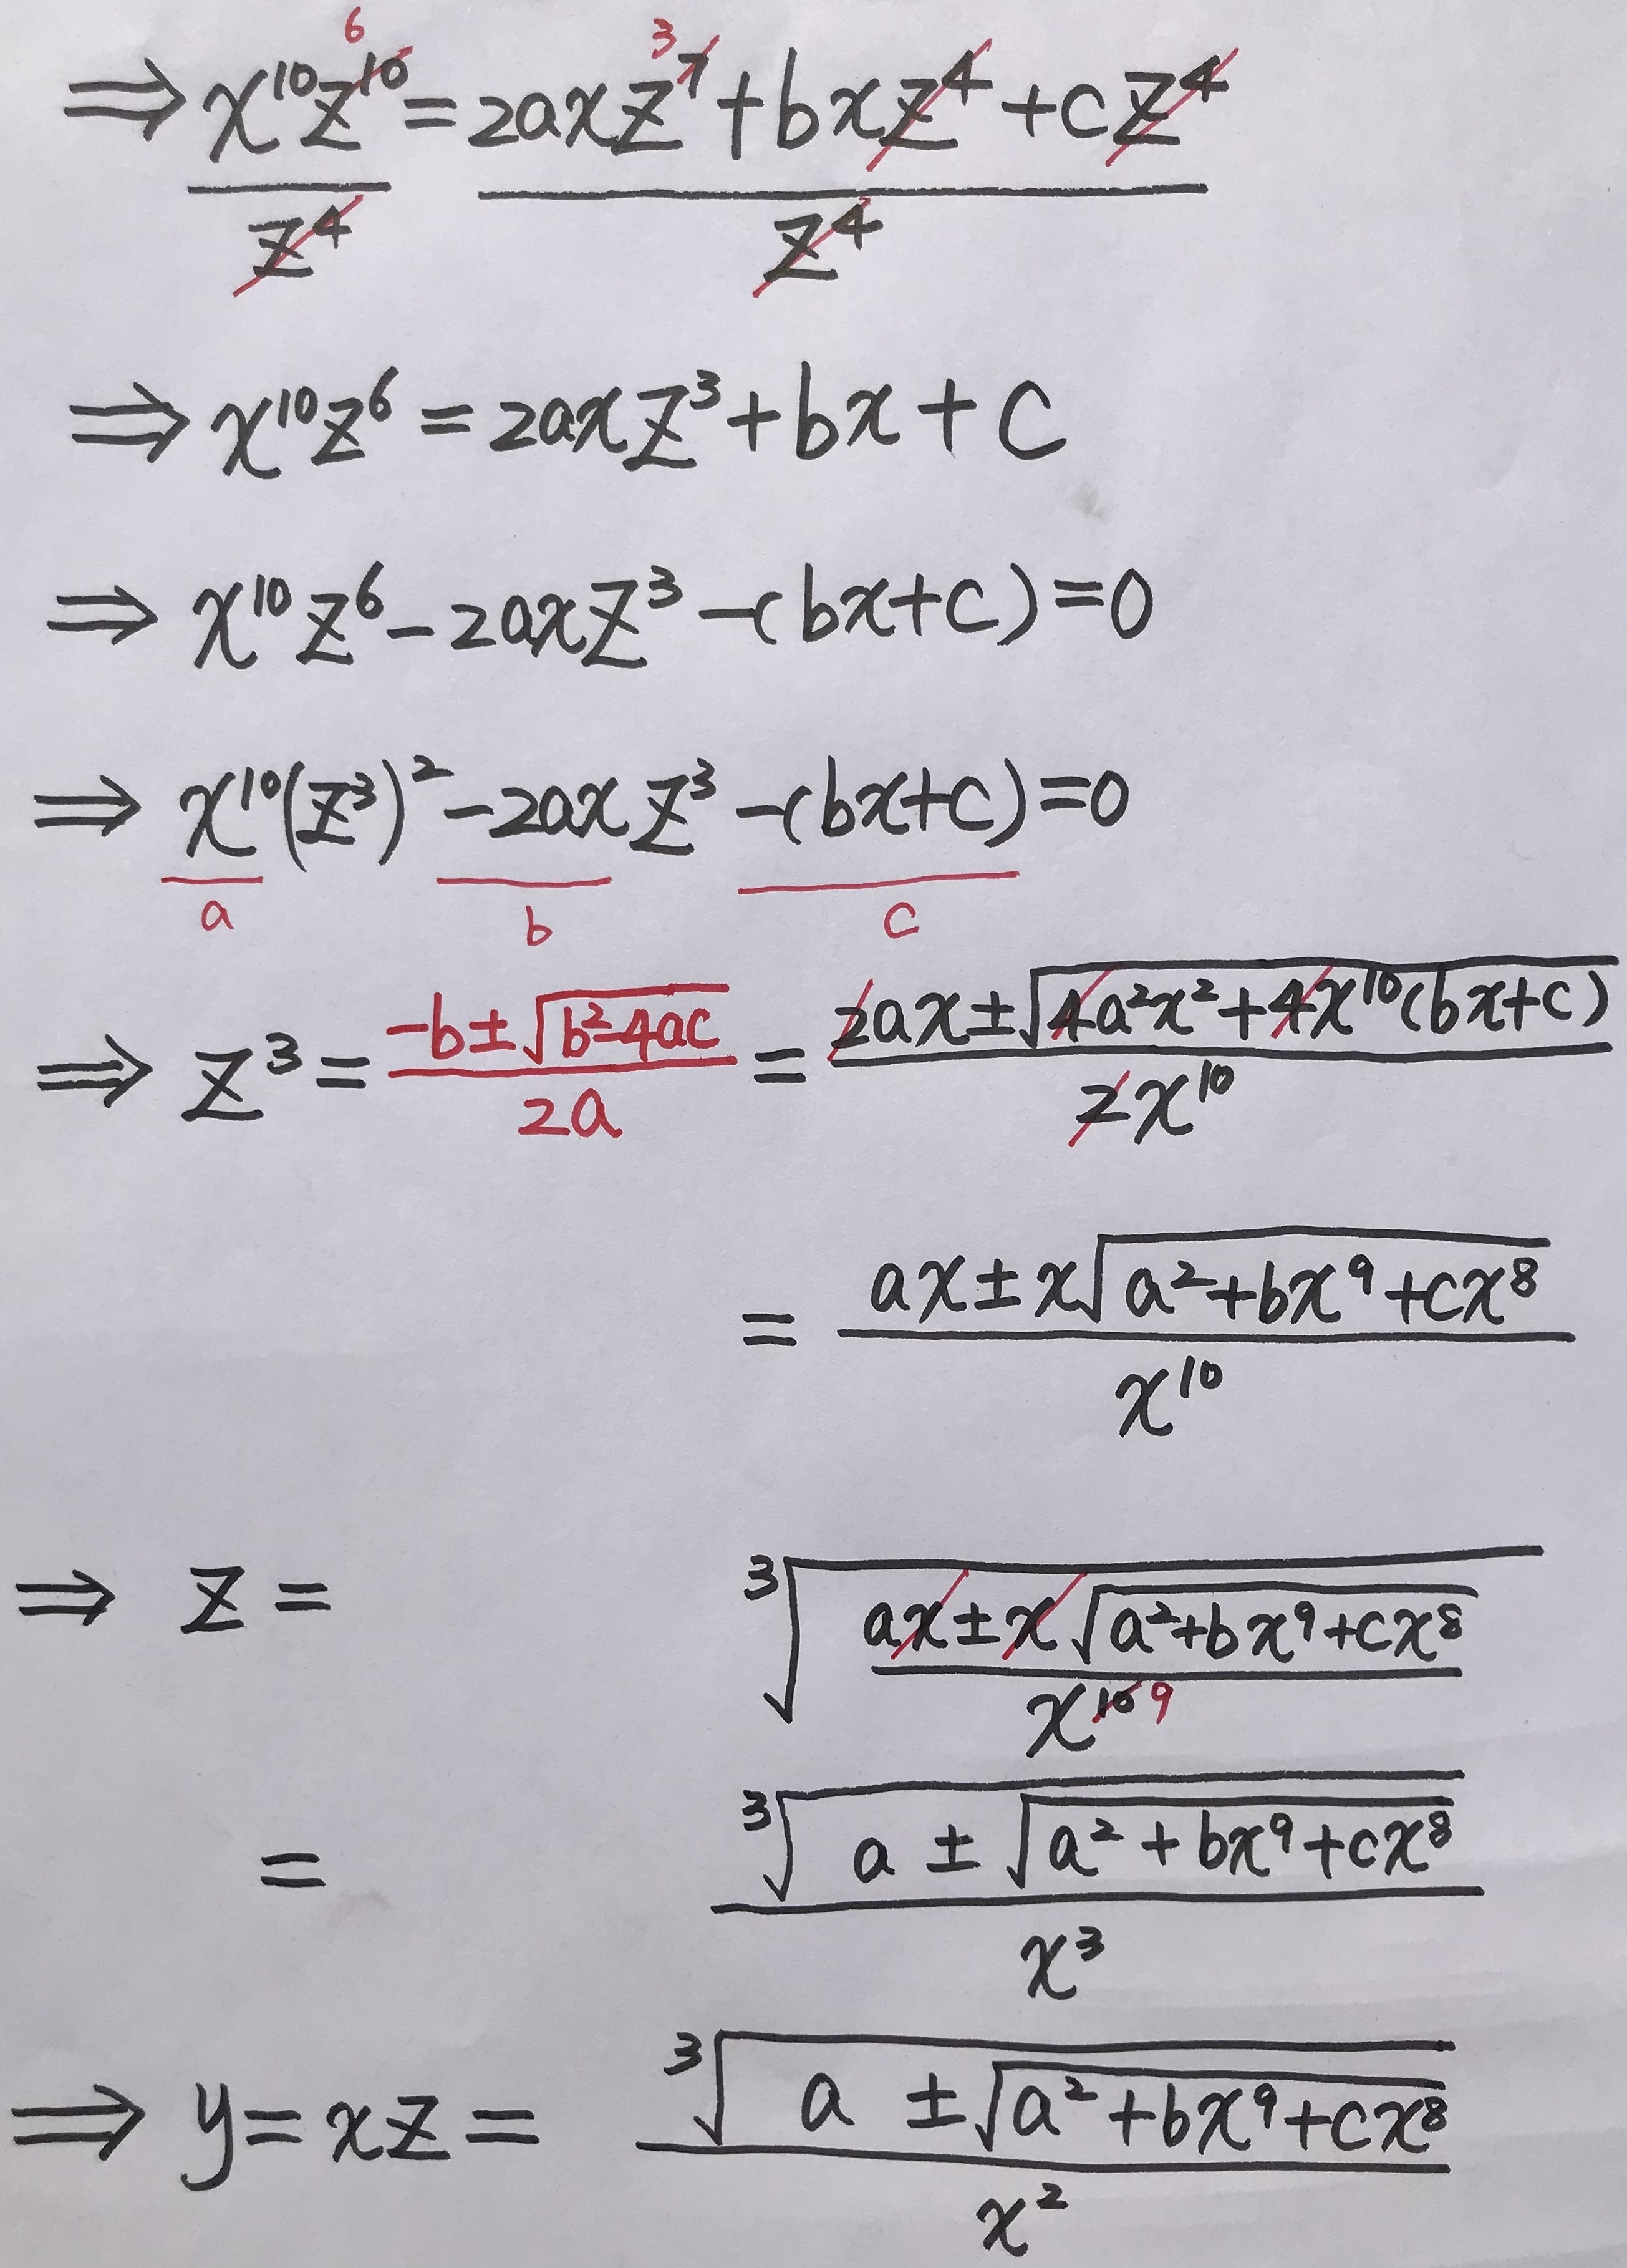 ⇒ x¹⁰z¹⁰⁶/z⁴ = (2axz⁷³ + bxz⁴ + cz⁴)/z⁴
⇒ x¹⁰z⁶ = 2axz³ + bx + c
⇒ x¹⁰z⁶ - 2axz³ - (bx+c) = 0
⇒ x¹⁰(z³)² - 2axz³ - (bx+c) = 0
a b c
⇒ z³ = (-b ± √(b²-4ac))/(2a) = (2ax ± √(4a²x² + 4x¹⁰(bx+c)))/(2x¹⁰)
= (ax ± x√(a²+bx⁹+cx⁸))/x¹⁰
⇒ z = ∛((ax ± x√(a²+bx⁹+cx⁸))/x¹⁰ ⁹)
= ∛(a ± √(a²+bx⁹+cx⁸))/x³
⇒ y = xz = ∛(a ± √(a²+bx⁹+cx⁸))/x²